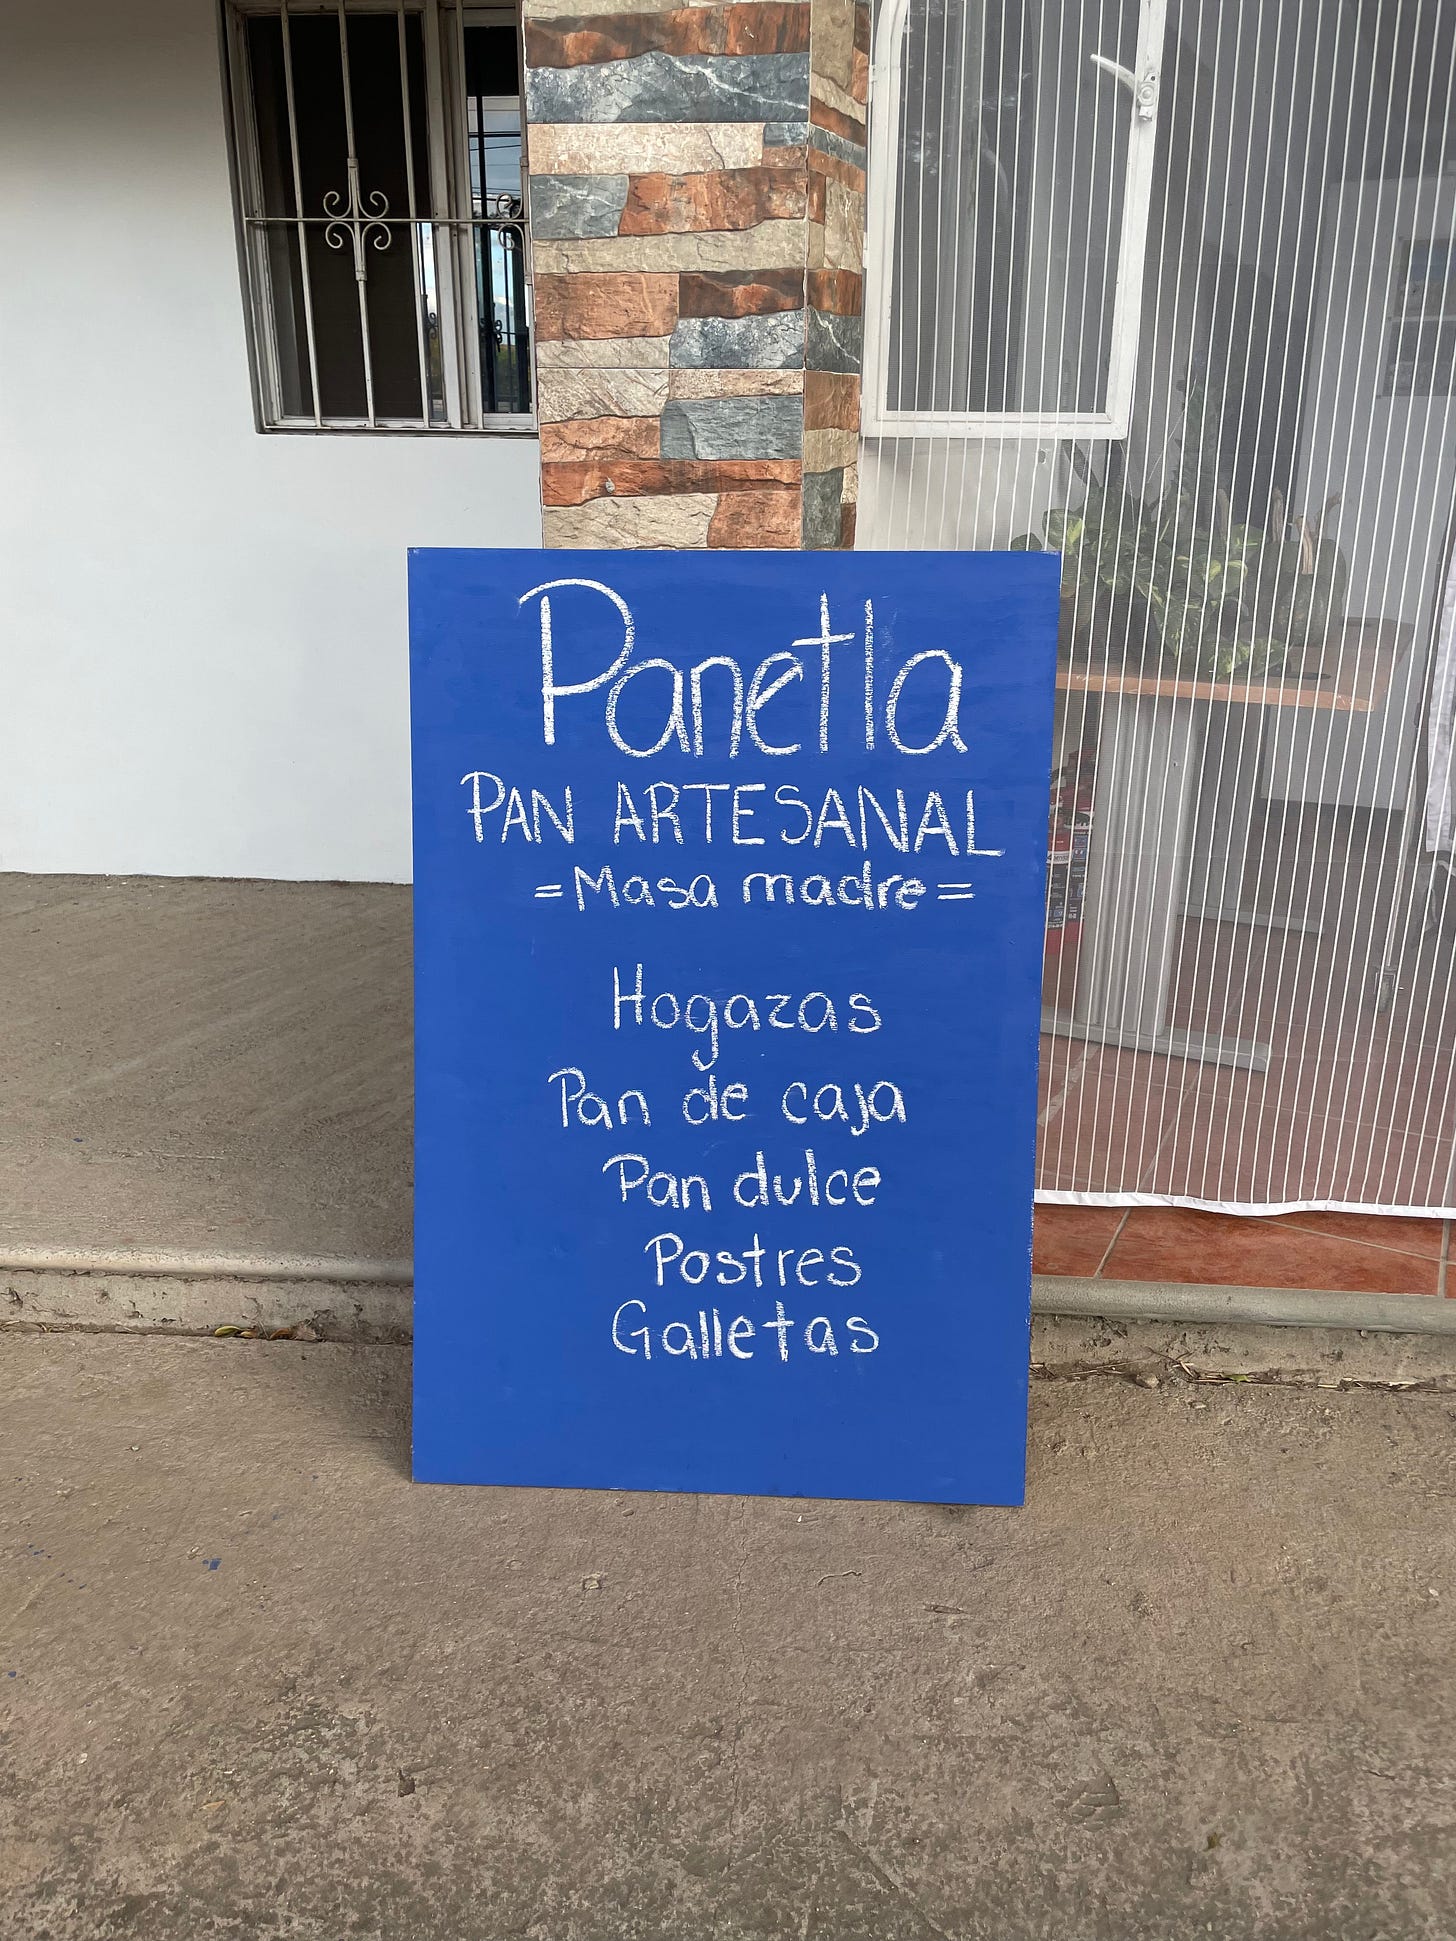 Panetla
PAN ARTESANAL
=Masa madre=
Hogazas
Pan de caja
Pan dulce
Postres
Galletas